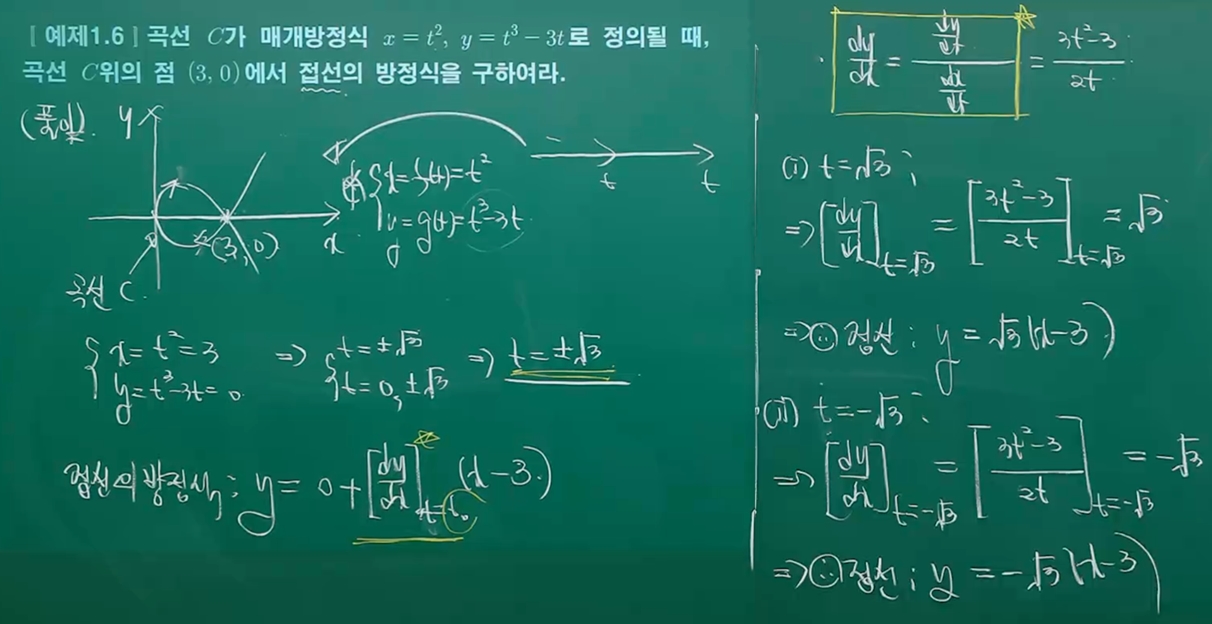 [ 예제1.6 ] 곡선 C가 매개방정식 x = t², y = t³ − 3t로 정의될 때,
곡선 C위의 점 (3, 0)에서 접선의 방정식을 구하여라.
(풀이).
y
x
(3, 0)
곡선 C.
{ x = f(t) = t²
y = g(t) = t³ − 3t
t
t
{ x = t² = 3
y = t³ − 3t = 0
⇒ { t = ±√3
t = 0, ±√3
⇒ t = ±√3
접선의 방정식 ; y = 0 + [dy/dx]t=t₀ (x − 3)
dy/dx = (dy/dt)/(dx/dt) = (3t² − 3)/2t
(i) t = √3 ;
⇒ [dy/dx]t=√3 = [(3t² − 3)/2t]t=√3 = √3
⇒ ∴ 접선 ; y = √3(x − 3)
(ii) t = −√3 ;
⇒ [dy/dx]t=−√3 = [(3t² − 3)/2t]t=−√3 = −√3
⇒ ∴ 접선 ; y = −√3(x − 3)